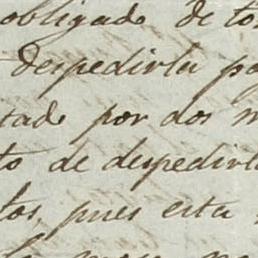 obligado de to
despedirla po
tado por dos m
to de despedirl
tos, pues esta